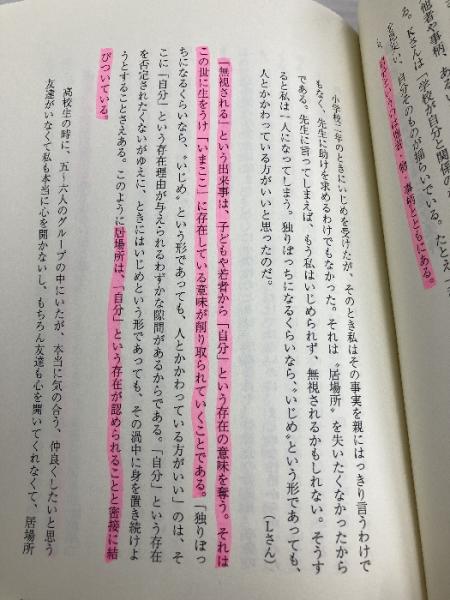 他者や事柄、ある
る。Kさんは「学校が自分と関係の
自分そのものが揺らいでいる。たとえ
事柄とともにある。
小学校二年のときにいじめを受けたが、そのとき私はその事実を親にはっきり言うわけで
もなく、先生に助けを求めるわけでもなかった。それは〝居場所〟を失いたくなかったから
だ。先生に言ってしまえば、もう私はいじめられず、無視されるかもしれない。そうす
ると私は一人になってしまう。独りぼっちになるくらいなら、〝いじめ〟という形であっても、
人とかかわっている方がいいと思ったのだ。
（Lさん）
「無視される」という出来事は、子どもや若者から「自分」という存在の意味を奪う。それは
この世に生をうけ「いまここ」に存在している意味が削り取られていくことである。「独りぼっ
ちになるくらいなら、〝いじめ〟という形であっても、人とかかわっている方がいい」のは、そ
こに「自分」という存在理由が与えられるわずかな隙間があるからである。「自分」という存在
を否定されたくないがゆえに、ときにはいじめという形であっても、その渦中に身を置き続けよ
うとすることさえある。このように居場所は、「自分」という存在が認められることと密接に結
びついている。
高校生の時に、五～六人のグループの中にいたが、本当に気の合う、仲良くしたいと思う
友達がいなくて私も本当に心を開かないし、もちろん友達も心を開いてくれなくて、居場所